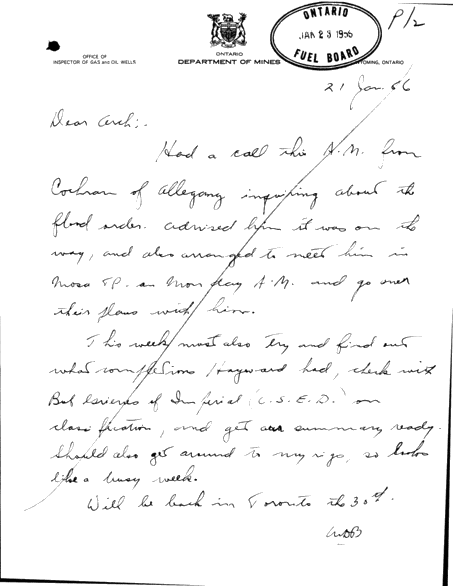 ONTARIO
JAN 23 1956
FUEL BOARD
P/2
OFFICE OF
INSPECTOR OF GAS and OIL WELLS
ONTARIO
DEPARTMENT OF MINES
WYOMING, ONTARIO
21 Jan. 56
Dear Arch;-
Had a call this A.M. from
Cochran of Allegany inquiring about the
flood order. Advised him it was on the
way, and also arranged to meet him in
Mosa TP. on Monday A.M. and go over
their plans with him.
This week must also try and find out
what completions Hayward had, check with
Bob of Imperial (C.S.E.D.) on
classification, and get our summary ready.
Should also get around to my rigs, so looks
like a busy week.
Will be back in Toronto the 30th.